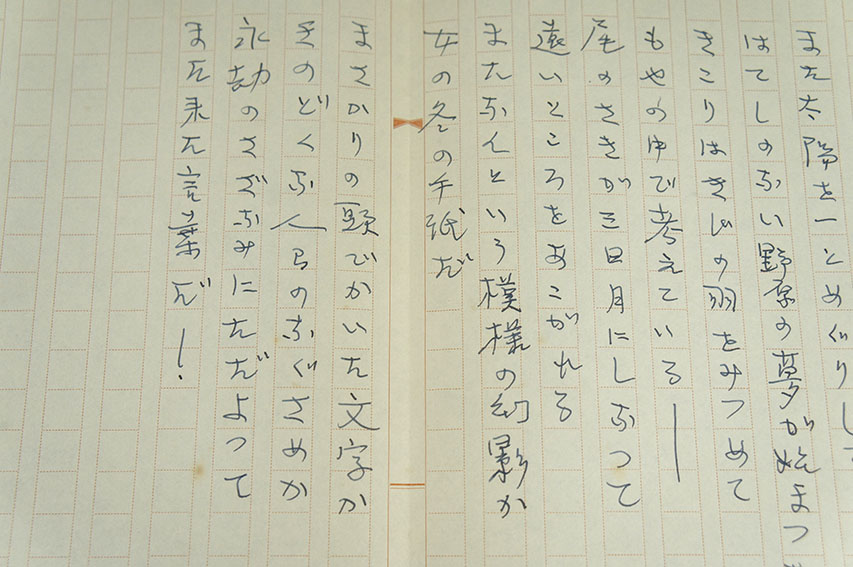 また太陽を一とめぐりして
はてしのない野原の夢が始まつ
きこりはきじの羽をみつめて
もやの中で考えている——
尾のさきが三日月にしなつて
遠いところをあこがれる
またなんという模様の幻影か
女の冬の手紙だ
まさかりの頭でかいた文字か
きのどくな人らのなぐさめか
永劫のさざなみにただよつて
また来た言葉だ!